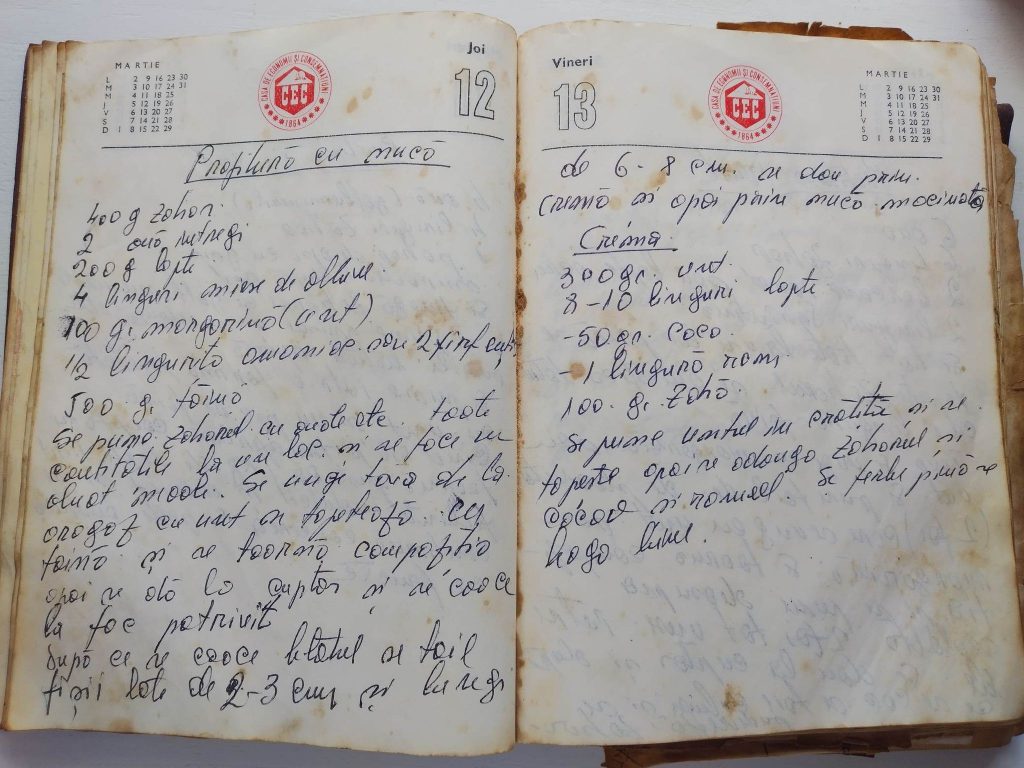 MARTIE
L 2 9 16 23 30
M 3 10 17 24 31
M 4 11 18 25
J 5 12 19 26
V 6 13 20 27
S 7 14 21 28
D 1 8 15 22 29
CASA DE ECONOMII ȘI CONSEMNAȚIUNI
CEC
1864
Joi
12
Prăjitură cu nucă
400 g zahăr
2 ouă întregi
200 g lapte
4 linguri miere de albine
100 g. margarină (unt)
1/2 linguriță amoniac sau 2
500 g. făină
Se pune zahărul cu ouăle etc. toate
cantitățile la un loc și se face un
aluat moale. Se unge tava de la
aragaz cu unt se
făină și se toarnă compoziția
apoi se dă la cuptor și se coace
la foc potrivit
după ce se coace blatul se taie
fișii late de 2-3 cm și lungi
Vineri
13
CASA DE ECONOMII ȘI CONSEMNAȚIUNI
CEC
1864
MARTIE
L 2 9 16 23 30
M 3 10 17 24 31
M 4 11 18 25
J 5 12 19 26
V 6 13 20 27
S 7 14 21 28
D 1 8 15 22 29
de 6-8 cm. se dau prin
cremă și apoi prin nucă măcinată
Crema
300 gr. unt
8-10 linguri lapte
-50 gr. caco
-1 lingură rom
100. g. zahă
Se pune untul în crătiță și se
topește apoi se adaugă zahărul și
și romul Se fierbe pînă se
leagă bine.